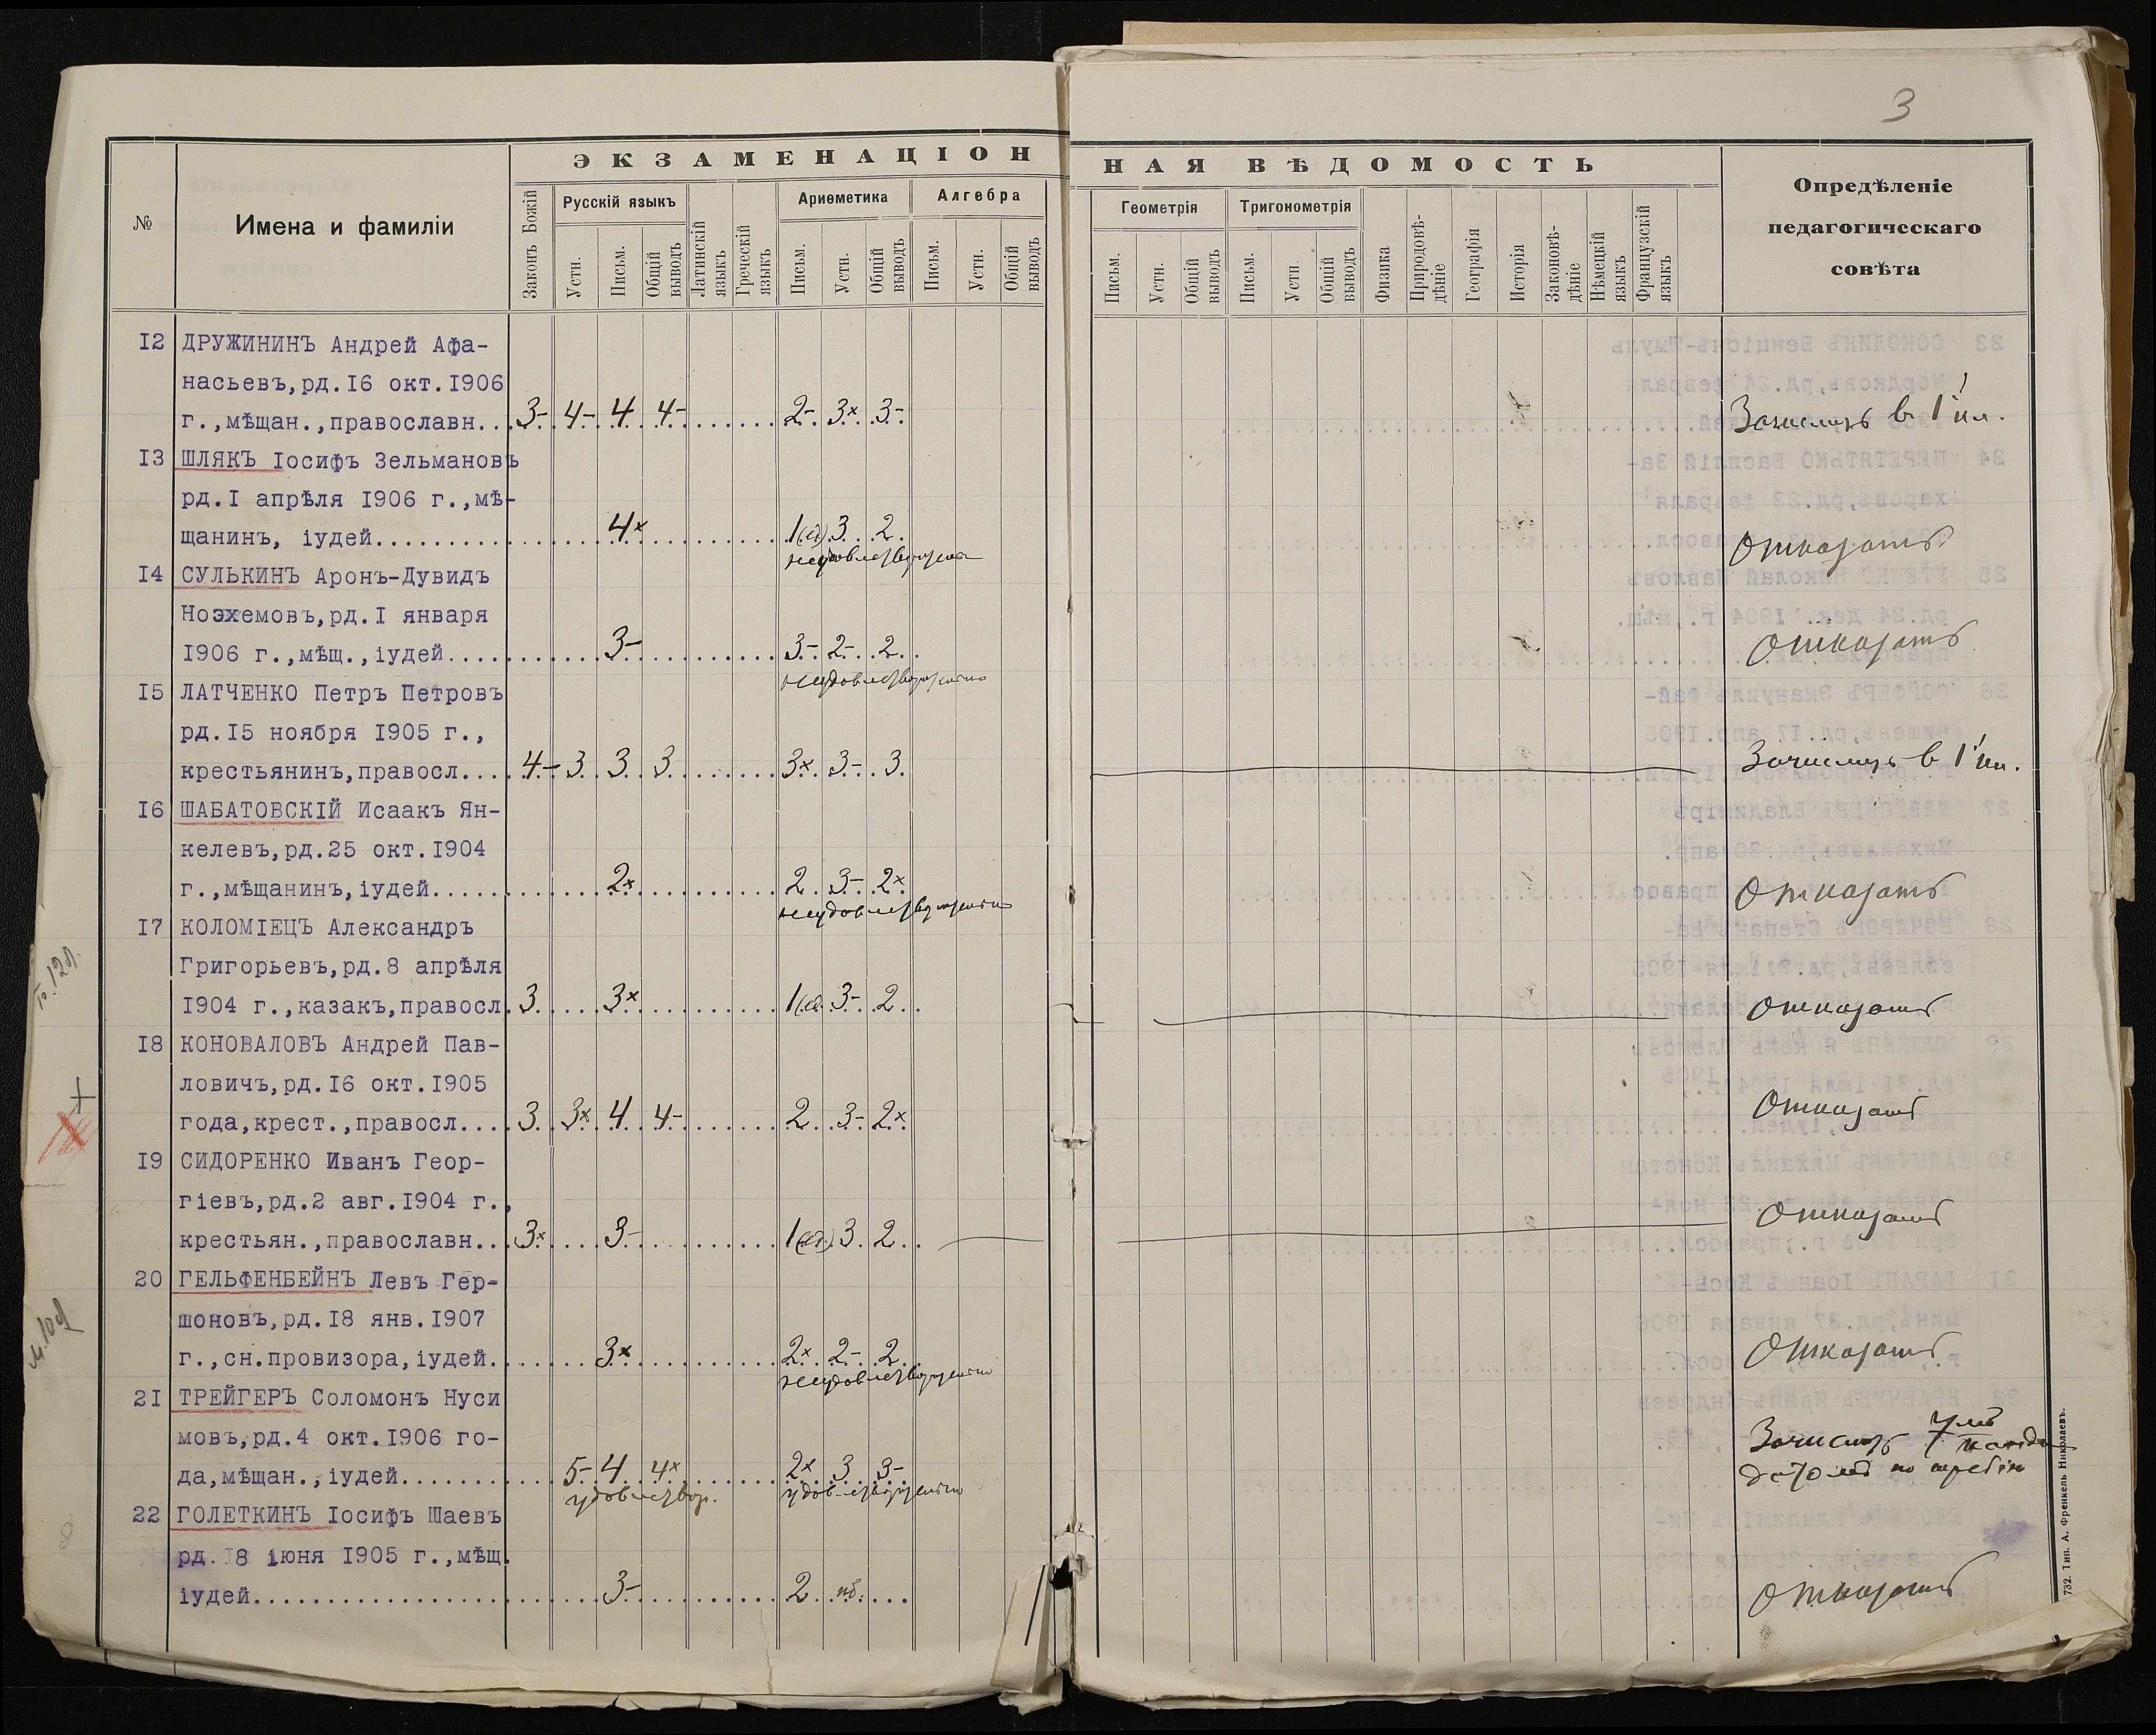 3
ЭКЗАМЕНАЦІОННАЯ ВѢДОМОСТЬ
№
Имена и фамиліи
Законъ Божій
Русскій языкъ
Устн.
Письм.
Общій выводъ
Латинскій языкъ
Греческій языкъ
Ариѳметика
Письм.
Устн.
Общій выводъ
Алгебра
Письм.
Устн.
Общій выводъ
Геометрія
Письм.
Устн.
Общій выводъ
Тригонометрія
Письм.
Устн.
Общій выводъ
Физика
Природовѣ-
дѣніе
Географія
Исторія
Законовѣ-
дѣніе
Нѣмецкій языкъ
Французскій языкъ
Опредѣленіе
педагогическаго
совѣта
12 ДРУЖИНИНЪ Андрей Афа-
насьевъ,рд.16 окт.1906
г.,мѣщан.,православн... 3- 4- 4 4- 2- 3× 3- Зачислить в 1 кл.
13 ШЛЯКЪ Іосифъ Зельмановъ
рд.I апрѣля 1906 г.,мѣ-
щанинъ, іудей... 4× 1(ед) 3 2 Отказать
неудовлетворительно
14 СУЛЬКИНЪ Аронъ-Дувидъ
Ноэхемовъ,рд.I января
1906 г.,мѣщ.,іудей... 3- 3- 2- 2 Отказать
неудовлетворительно
15 ЛАТЧЕНКО Петръ Петровъ
рд.15 ноября 1905 г.,
крестьянинъ,правосл... 4- 3 3 3 3× 3- 3 Зачислить в 1 кл.
16 ШАБАТОВСКІЙ Исаакъ Ян-
келевъ,рд.25 окт.1904
г.,мѣщанинъ,іудей... 2× 2 3- 2× Отказать
неудовлетворительно
17 КОЛОМІЕЦЪ Александръ
Григорьевъ,рд.8 апрѣля
1904 г.,казакъ,правосл. 3 3× 1(ед. 3- 2 Отказать
18 КОНОВАЛОВЪ Андрей Пав-
ловичъ,рд.16 окт.1905
года,крест.,правосл... 3 3× 4 4- 2 3- 2× Отказать
19 СИДОРЕНКО Иванъ Геор-
гіевъ,рд.2 авг.1904 г.,
крестьян.,православн... 3× 3- 1(ед) 3 2 Отказать
20 ГЕЛЬФЕНБЕЙНЪ Левъ Гер-
шоновъ,рд.18 янв.1907
г.,сн.провизора,іудей... 3× 2× 2- 2 Отказать
неудовлетворительно
21 ТРЕЙГЕРЪ Соломонъ Нуси
мовъ,рд.4 окт.1906 го-
да,мѣщан.,іудей... 5- 4 4× 2× 3 3- Зачислить
удовлетвор. удовлетворительно
22 ГОЛЕТКИНЪ Іосифъ Шаевъ
рд.18 іюня 1905 г.,мѣщ.
іудей... 3- 2 нб. Отказать
732. Тип. А. Френкель Николаевъ.